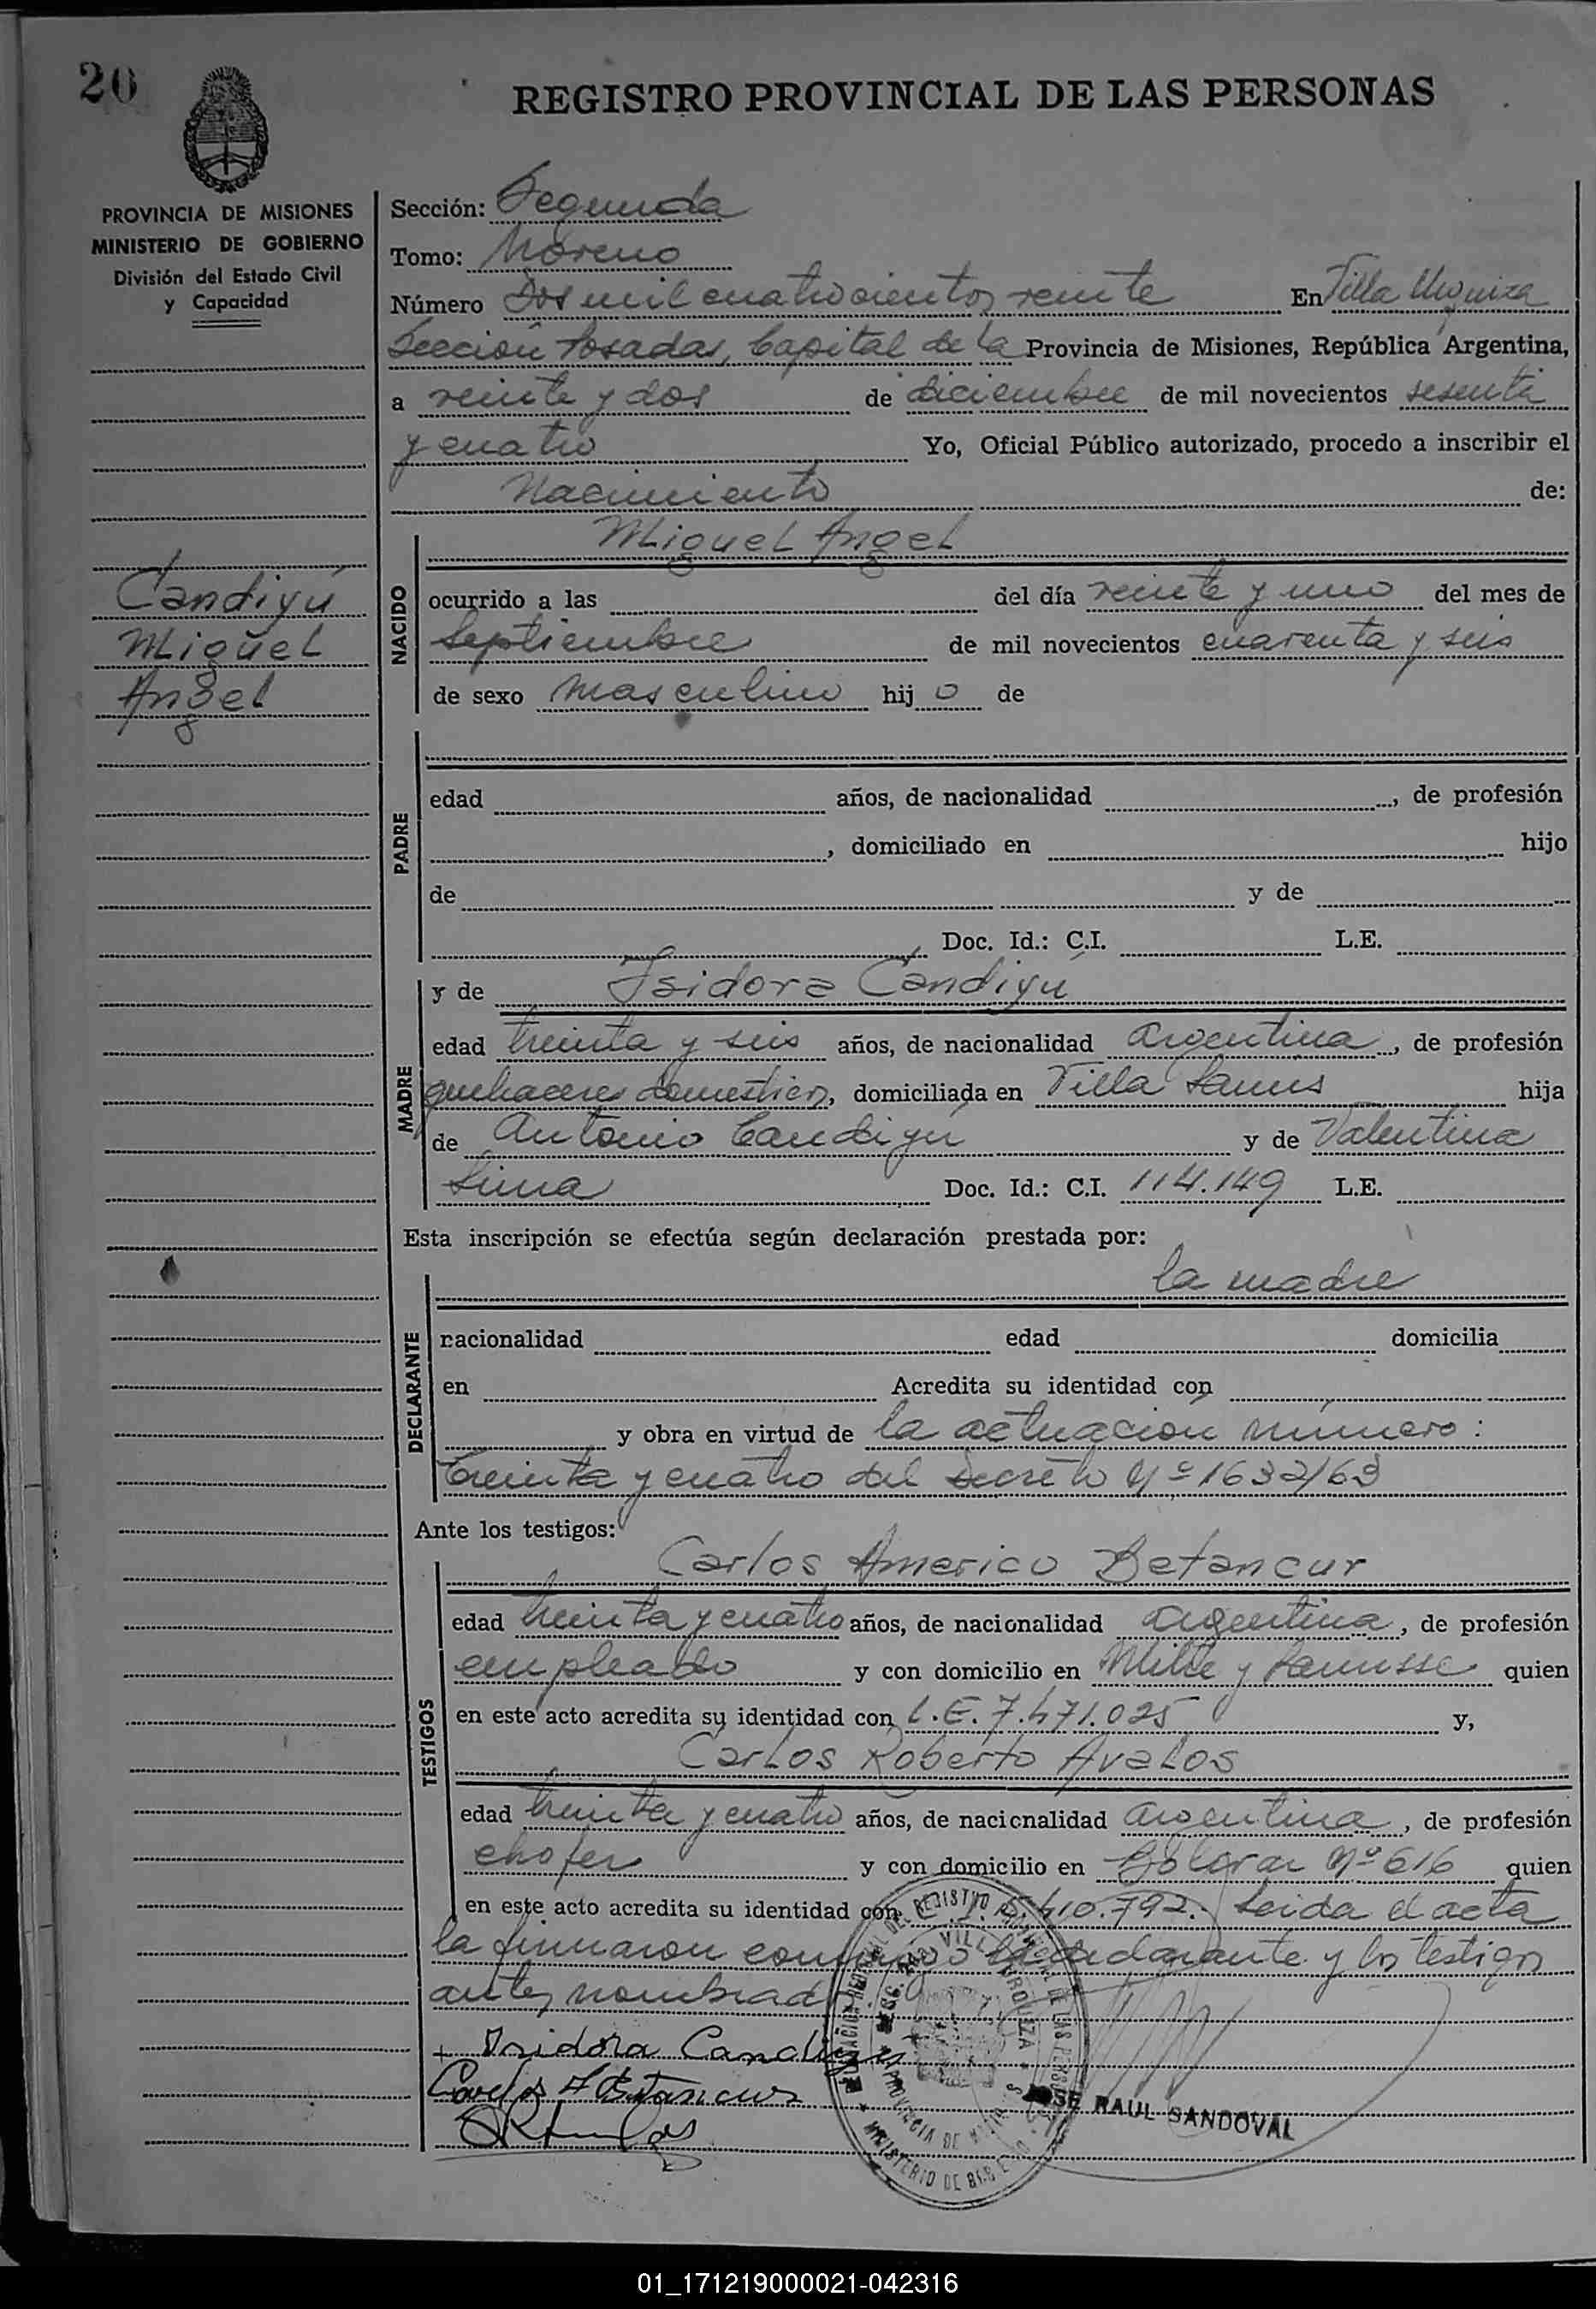 20
REGISTRO PROVINCIAL DE LAS PERSONAS
PROVINCIA DE MISIONES
MINISTERIO DE GOBIERNO
División del Estado Civil
y Capacidad
Candiyú
Miguel
Angel
Sección: Segunda
Tomo: Moreno
Número Dos mil cuatrocientos veinte En Villa Urquiza
Sección Posadas, Capital de la Provincia de Misiones, República Argentina,
a veinte y dos de diciembre de mil novecientos sesenta
y cuatro Yo, Oficial Público autorizado, procedo a inscribir el
Nacimiento de:
NACIDO
Miguel Angel
ocurrido a las del día veinte y uno del mes de
Septiembre de mil novecientos cuarenta y seis
de sexo masculino hijo de
PADRE
edad años, de nacionalidad , de profesión
, domiciliado en hijo
de y de
, Doc. Id.: C.I. L.E.
MADRE
y de Isidora Candiyú
edad treinta y seis años, de nacionalidad argentina, de profesión
quehaceres domesticos, domiciliada en Villa Lanus hija
de Antonio Candiyú y de Valentina
Doc. Id.: C.I. 114.149 L.E.
Esta inscripción se efectúa según declaración prestada por:
la madre
DECLARANTE
racionalidad edad domicilia
en Acredita su identidad con
y obra en virtud de la actuación número:
treinta y cuatro del Decreto Nº 1632/63
Ante los testigos:
TESTIGOS
Carlos Americo Betancur
edad treinta y cuatro años, de nacionalidad argentina, de profesión
empleado y con domicilio en y Lanusse quien
en este acto acredita su identidad con L.E. 7.471.025 y,
Carlos Roberto Avalos
edad treinta y cuatro años, de nacionalidad argentina, de profesión
chofer y con domicilio en Bolivar Nº 616 quien
en este acto acredita su identidad con 410.792. Leida el acta
la firmaron conmigo la declarante y los testigos
antes nombrad
Isidora Candiyú
Carlos A Betancur
JOSE RAUL SANDOVAL
VILLA URQUIZA
PROVINCIA DE
MINISTERIO DE
01_171219000021-042316